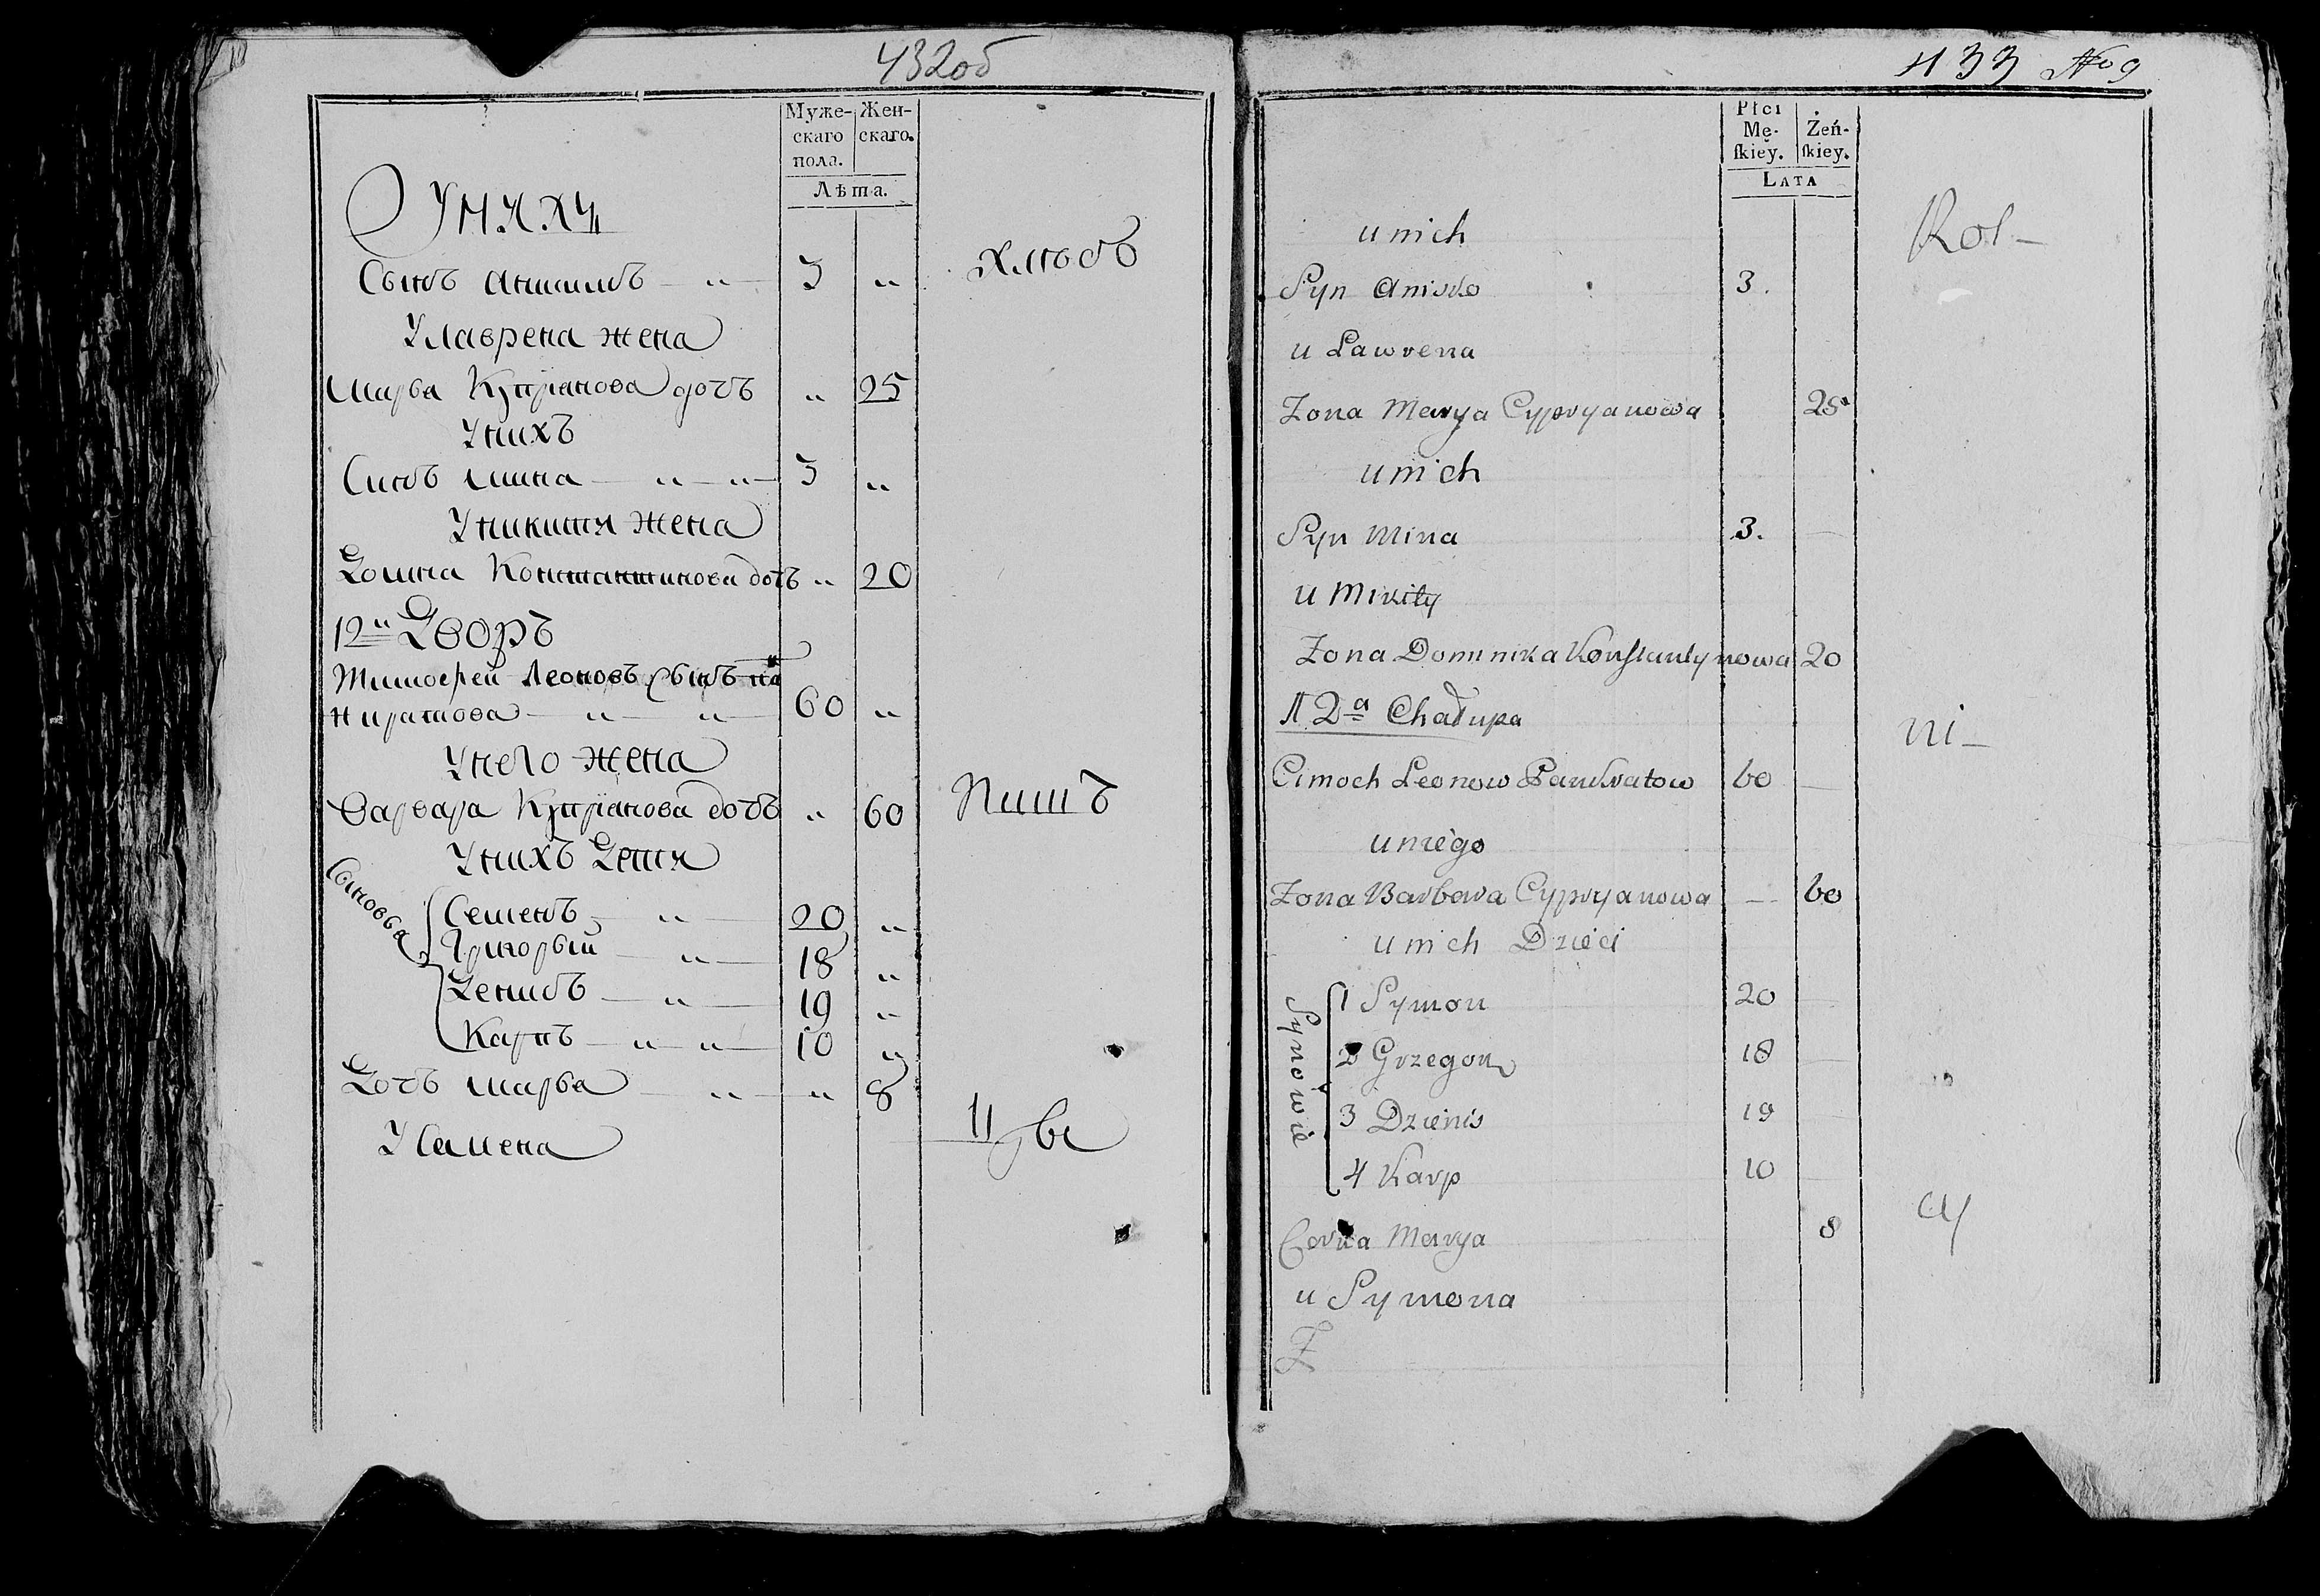 432об
Муже-
скаго
пола.
Жен-
скаго.
Лѣта.
У нихъ
Сынъ Анисимъ — „ — 3 „
Хлѣбъ
У Лаврена жена
Марѳа Купріанова дочъ „ 25
У нихъ
Синъ Мина — „ — „ — 3 „
У Никити жена
Домна Константинова дочъ „ 20
12й Дворъ
Тимофей Леоновъ Сынъ Па
нкратова — „ — „ — 60 „
У него жена
Варвара Купріанова дочъ „ 60
Пишъ
У нихъ Дети
Сыновья
Семенъ — „ — 20 „
Григорый — „ — 18 „
Денисъ — „ — 19 „
Карпъ — „ — „ — 10 „
Дочъ Марѳа — „ — „ 8
У Семена
433 No 9
Płci
Mę-
ſkiey.
Żeń-
ſkiey.
LATA
u nich
Rol-
Syn Anisko 3.
u Lawrena
Zona Marya Cypryanowa 25.
u nich
Syn Mina 3.
u Mikity
Zona Dominika Konstantynowa 20
12a Chałupa
ni-
Cimoch Leonow Pankratow 60
u niego
Zona Barbara Cypryanowa 60
u nich Dzieci
Synowie
1 Symon 20
2 Grzegorz 18
3 Dzienis 19
4 Karp 10
cy
Corka Marya 8
u Symona
Z